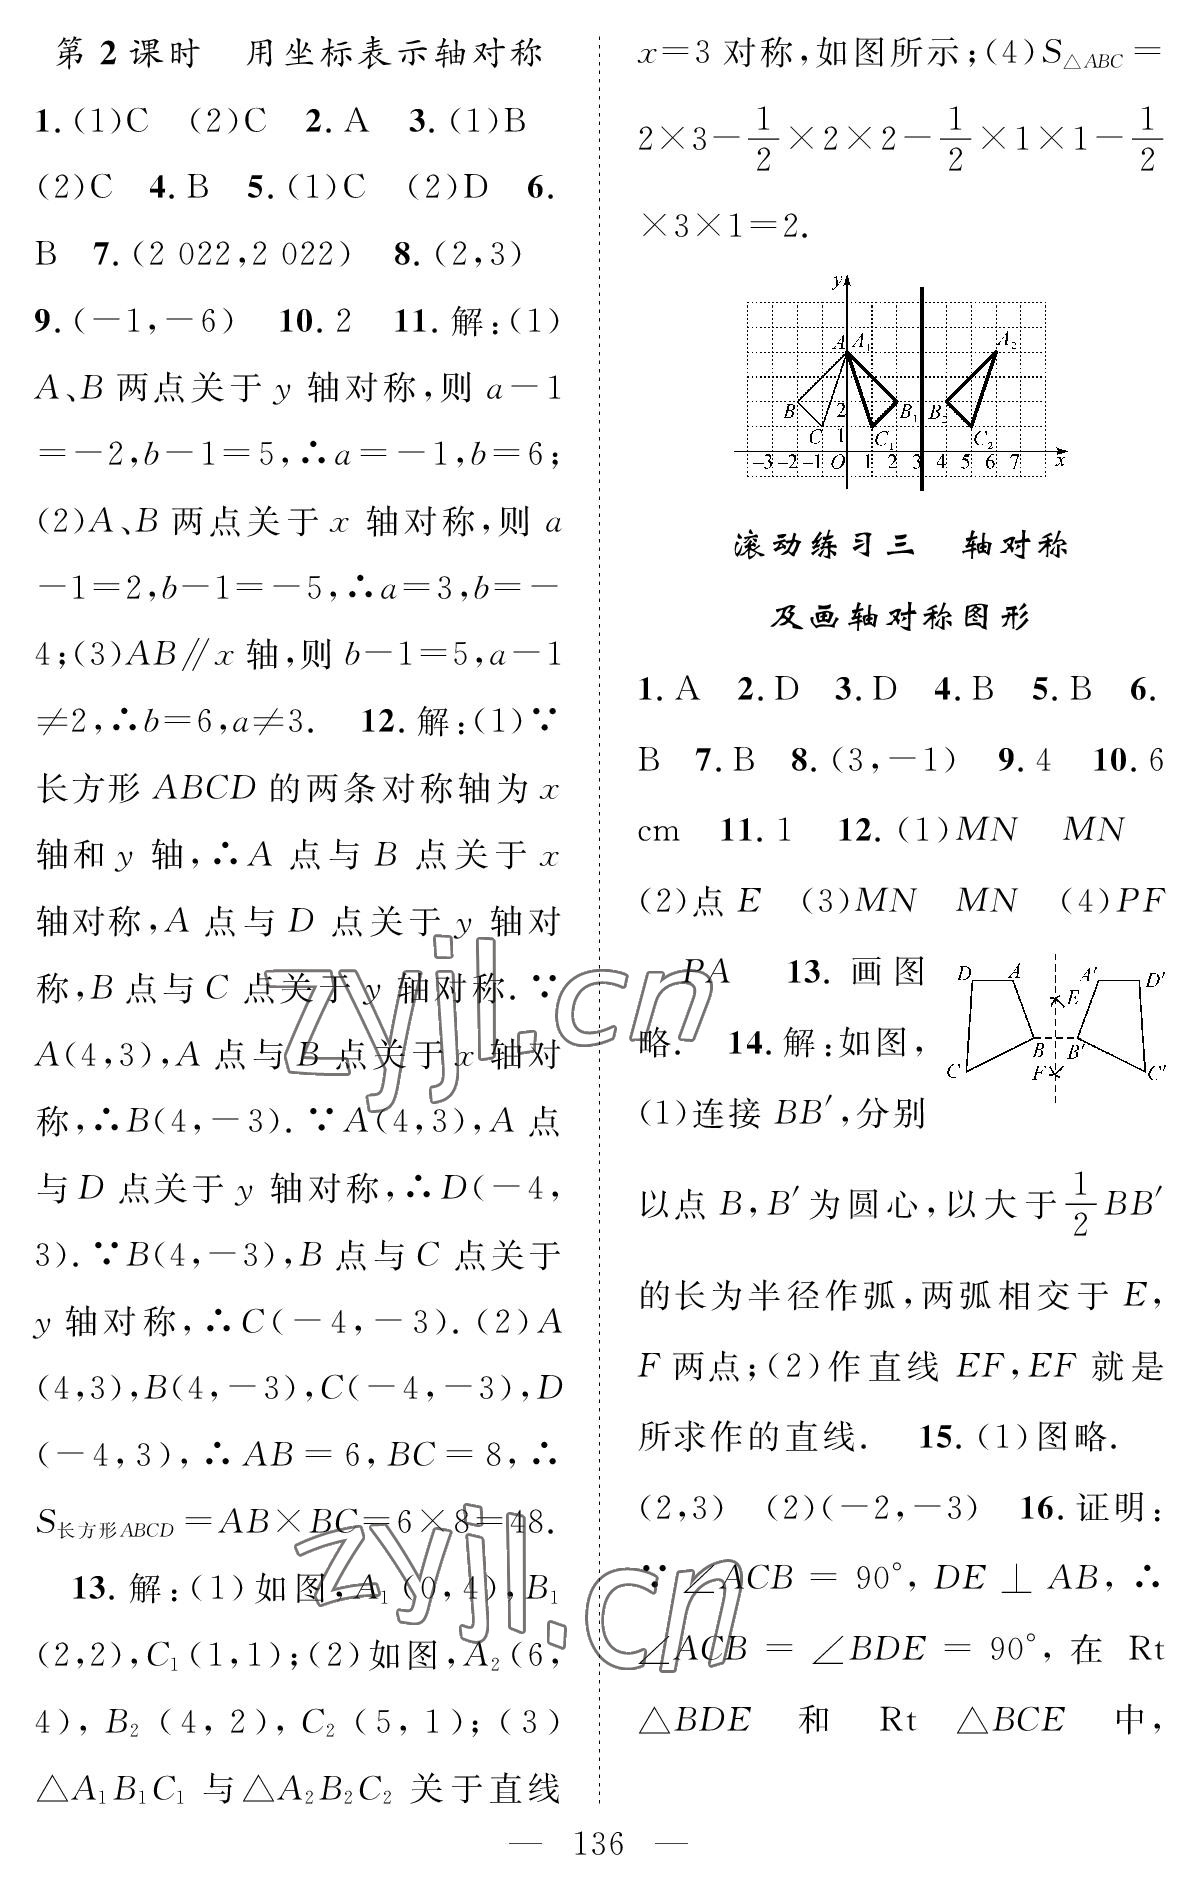 第2课时　用坐标表示轴对称
1.(1)C　(2)C　2.A　3.(1)B
(2)C　4.B　5.(1)C　(2)D　6.
B　7.(2 022,2 022)　8.(2,3)
9.(-1,-6)　10.2　11.解:(1)
A、B两点关于y轴对称,则a-1
=-2,b-1=5,∴a=-1,b=6;
(2)A、B两点关于x轴对称,则a
-1=2,b-1=-5,∴a=3,b=-
4;(3)AB∥x轴,则b-1=5,a-1
≠2,∴b=6,a≠3.　12.解:(1)∵
长方形ABCD的两条对称轴为x
轴和y轴,∴A点与B点关于x
轴对称,A点与D点关于y轴对
称,B点与C点关于y轴对称.∵
A(4,3),A点与B点关于x轴对
称,∴B(4,-3).∵A(4,3),A点
与D点关于y轴对称,∴D(-4,
3).∵B(4,-3),B点与C点关于
y轴对称,∴C(-4,-3).(2)A
(4,3),B(4,-3),C(-4,-3),D
(-4,3),∴AB=6,BC=8,∴
S长方形ABCD=AB×BC=6×8=48.
13.解:(1)如图,A₁(0,4),B₁
(2,2),C₁(1,1);(2)如图,A₂(6,
4),B₂(4,2),C₂(5,1);(3)
△A₁B₁C₁与△A₂B₂C₂关于直线
x=3对称,如图所示;(4)S△ABC=
2×3-1/2×2×2-1/2×1×1-1/2
×3×1=2.
y
A A₁ A₂
B 2 B₁ B₂
C 1 C₁ C₂
-3 -2 -1 O 1 2 3 4 5 6 7 x
滚动练习三　轴对称
及画轴对称图形
1.A　2.D　3.D　4.B　5.B　6.
B　7.B　8.(3,-1)　9.4　10.6
cm　11.1　12.(1)MN　MN
(2)点E　(3)MN　MN　(4)PF
PA　13.画图
略.　14.解:如图,
(1)连接BB′,分别
D A A′ D′
E
B B′
C F C′
以点B,B′为圆心,以大于1/2BB′
的长为半径作弧,两弧相交于E,
F两点;(2)作直线EF,EF就是
所求作的直线.　15.(1)图略.
(2,3)　(2)(-2,-3)　16.证明:
∵∠ACB=90°,DE⊥AB,∴
∠ACB=∠BDE=90°,在Rt
△BDE和Rt△BCE中,
— 136 —
zyjl.cn
zyjl.cn